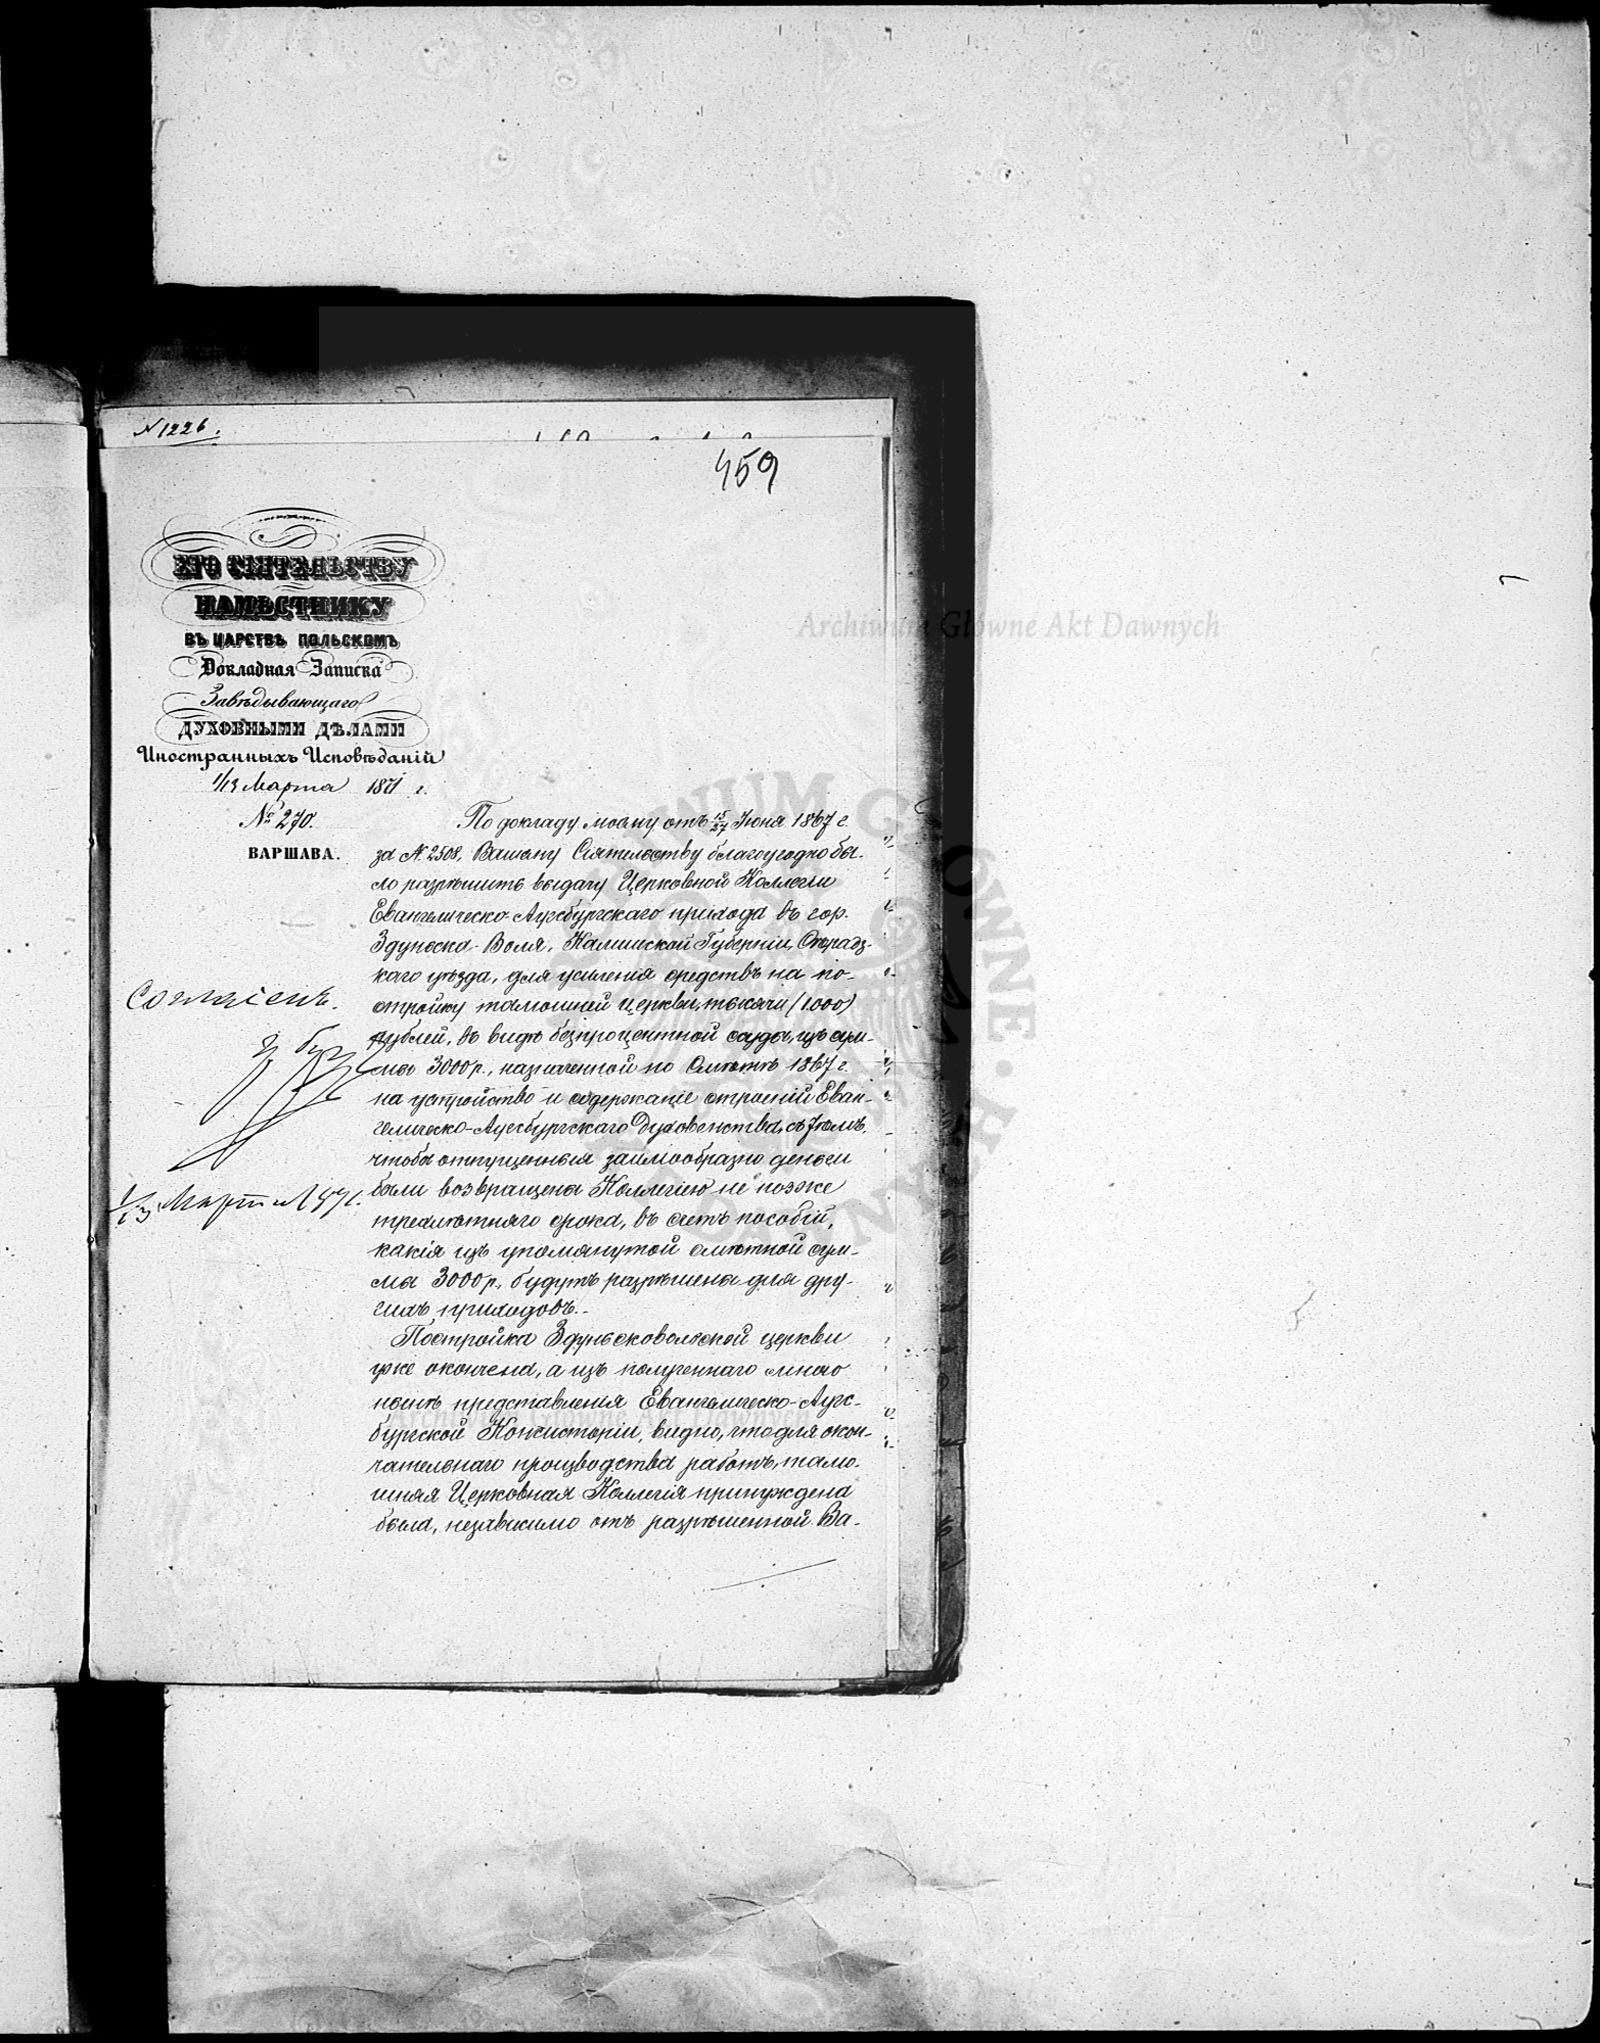 N 1226.
459
ЕГО СІЯТЕЛЬСТВУ
НАМѢСТНИКУ
ВЪ ЦАРСТВѢ ПОЛЬСКОМЪ
Докладная Записка
Завѣдывающаго
ДУХОВНЫМИ ДѢЛАМИ
Иностранныхъ Исповѣданій
1/13 Марта 1871 г.
№ 270.
ВАРШАВА.
Согласенъ.
1/13 Марта 1871.
По докладу моему отъ 15/27 Іюня 1867 г.
за N. 2508, Вашему Сіятельству благоугодно бы-
ло разрѣшить выдачу Церковной Коллегіи
Евангелическо-Аугсбургскаго прихода въ гор.
Здунска-Воля, Калишской Губерніи, Сѣрадз-
каго уѣзда, для усиленія средствъ на по-
стройку тамошней церкви, тысячи (1.000)
рублей, въ видѣ безпроцентной ссуды, изъ сум-
мы 3000 р., назначенной по Смѣтѣ 1867 г.
на устройство и содержаніе строеній Еван-
гелическо-Аугсбургскаго Духовенства, съ тѣмъ,
чтобы отпущенныя заимообразно деньги
были возвращены Коллегіею не позже
трехлѣтняго срока, въ счетъ пособій,
какія изъ упомянутой смѣтной сум-
мы 3000 р., будутъ разрѣшены для дру-
гихъ приходовъ.-
Постройка Здунсковольской церкви
уже окончена, а изъ полученнаго мною
нынѣ представленія Евангелическо-Аугс-
бургской Консисторіи, видно, что для окон-
чательнаго производства работъ, тамо-
шняя Церковная Коллегія принуждена
была, независимо отъ разрѣшенной Ва-
Archiwum Główne Akt Dawnych
Archiwum Główne Akt Dawnych